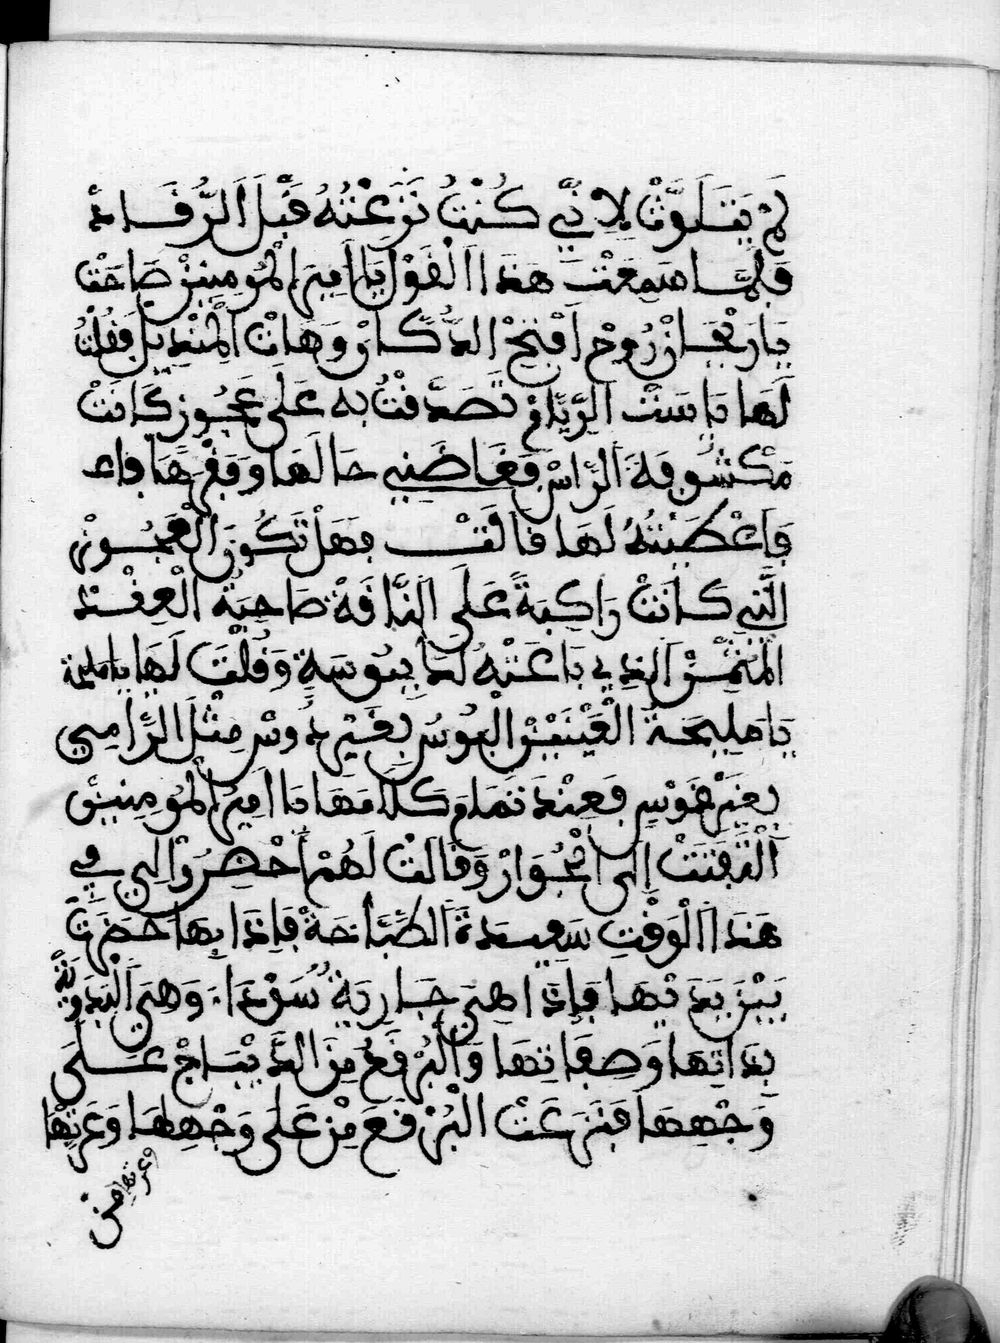 لَمْ يَتَلَوَّثْ لِأَنِّي كُنْتُ نَزَعْتُهُ قَبْلَ الرُّقَادْ
فَلَمَّا سَمِعَتْ هَذَا الْقَوْلَ يَا أَمِيرَ الْمُومِنِينْ صَاحَتْ
يَا رَيْحَانْ رُوحْ افْتَحْ الدُّكَّانْ وَهَاتْ الْمَنْدِيلْ فَقُلْتُ
لَهَا يَا سَتْ الرِّيَّاحْ تَصَدَّقْتُ بِهِ عَلَى عَجُوزٍ كَانَتْ
مَكْشُوفَةَ الرَّاسْ فَغَاظَنِي حَالَهَا وَفَقْرِهَا
فَاعْطَيْتُهُ لَهَا قَالَتْ فَهَلْ تَكُونُ الْعَجُوزْ
الَّتِي كَانَتْ رَاكِبَةً عَلَى النَّاقَةْ صَاحِبَةُ الْعِقْدْ
الْمُثَمَّنْ الذِي بَاعَتْهُ لَكَ بِبُوسَةٍ وَقُلْتَ لَهَا يَا مليحة
يَا مَلِيحَةُ الْعَيْنَيْنْ الْبُوسْ بِغَيْرِ دُوسْ مِثْلَ الرَّامِي
بِغَيْرِ قَوْسٍ فَعِنْدَ تَمَامِ كَلَامَهَا يَا أَمِيرَ الْمُومِنِينْ
الْتَفَتَتْ إِلَى الْجُوَارْ وَقَالَتْ لَهُمْ أَحْضِرُوا لِي فِي
هَذَا الْوَقْتِ سَعِيدَةَ الطَّبَّاخَةْ فَإِذَا بِهَا حَضَرَتْ
بَيْنَ يَدَيْهَا فَإِذَا هِيَ جَارِيَةٌ سَوْدَاءْ وَهِيَ الْبَدَوِيَّةْ
بِذَاتِهَا وَصِفَاتِهَا وَالْبُرْقَعْ مِنَ الدَّيْبَاجْ عَلَى
وَجْهِهَا فَنَزَعَتْ الْبُرْقَعَ مِنْ عَلَى وَجْهِهَا وَعَرَتْهَا
وعرتها من